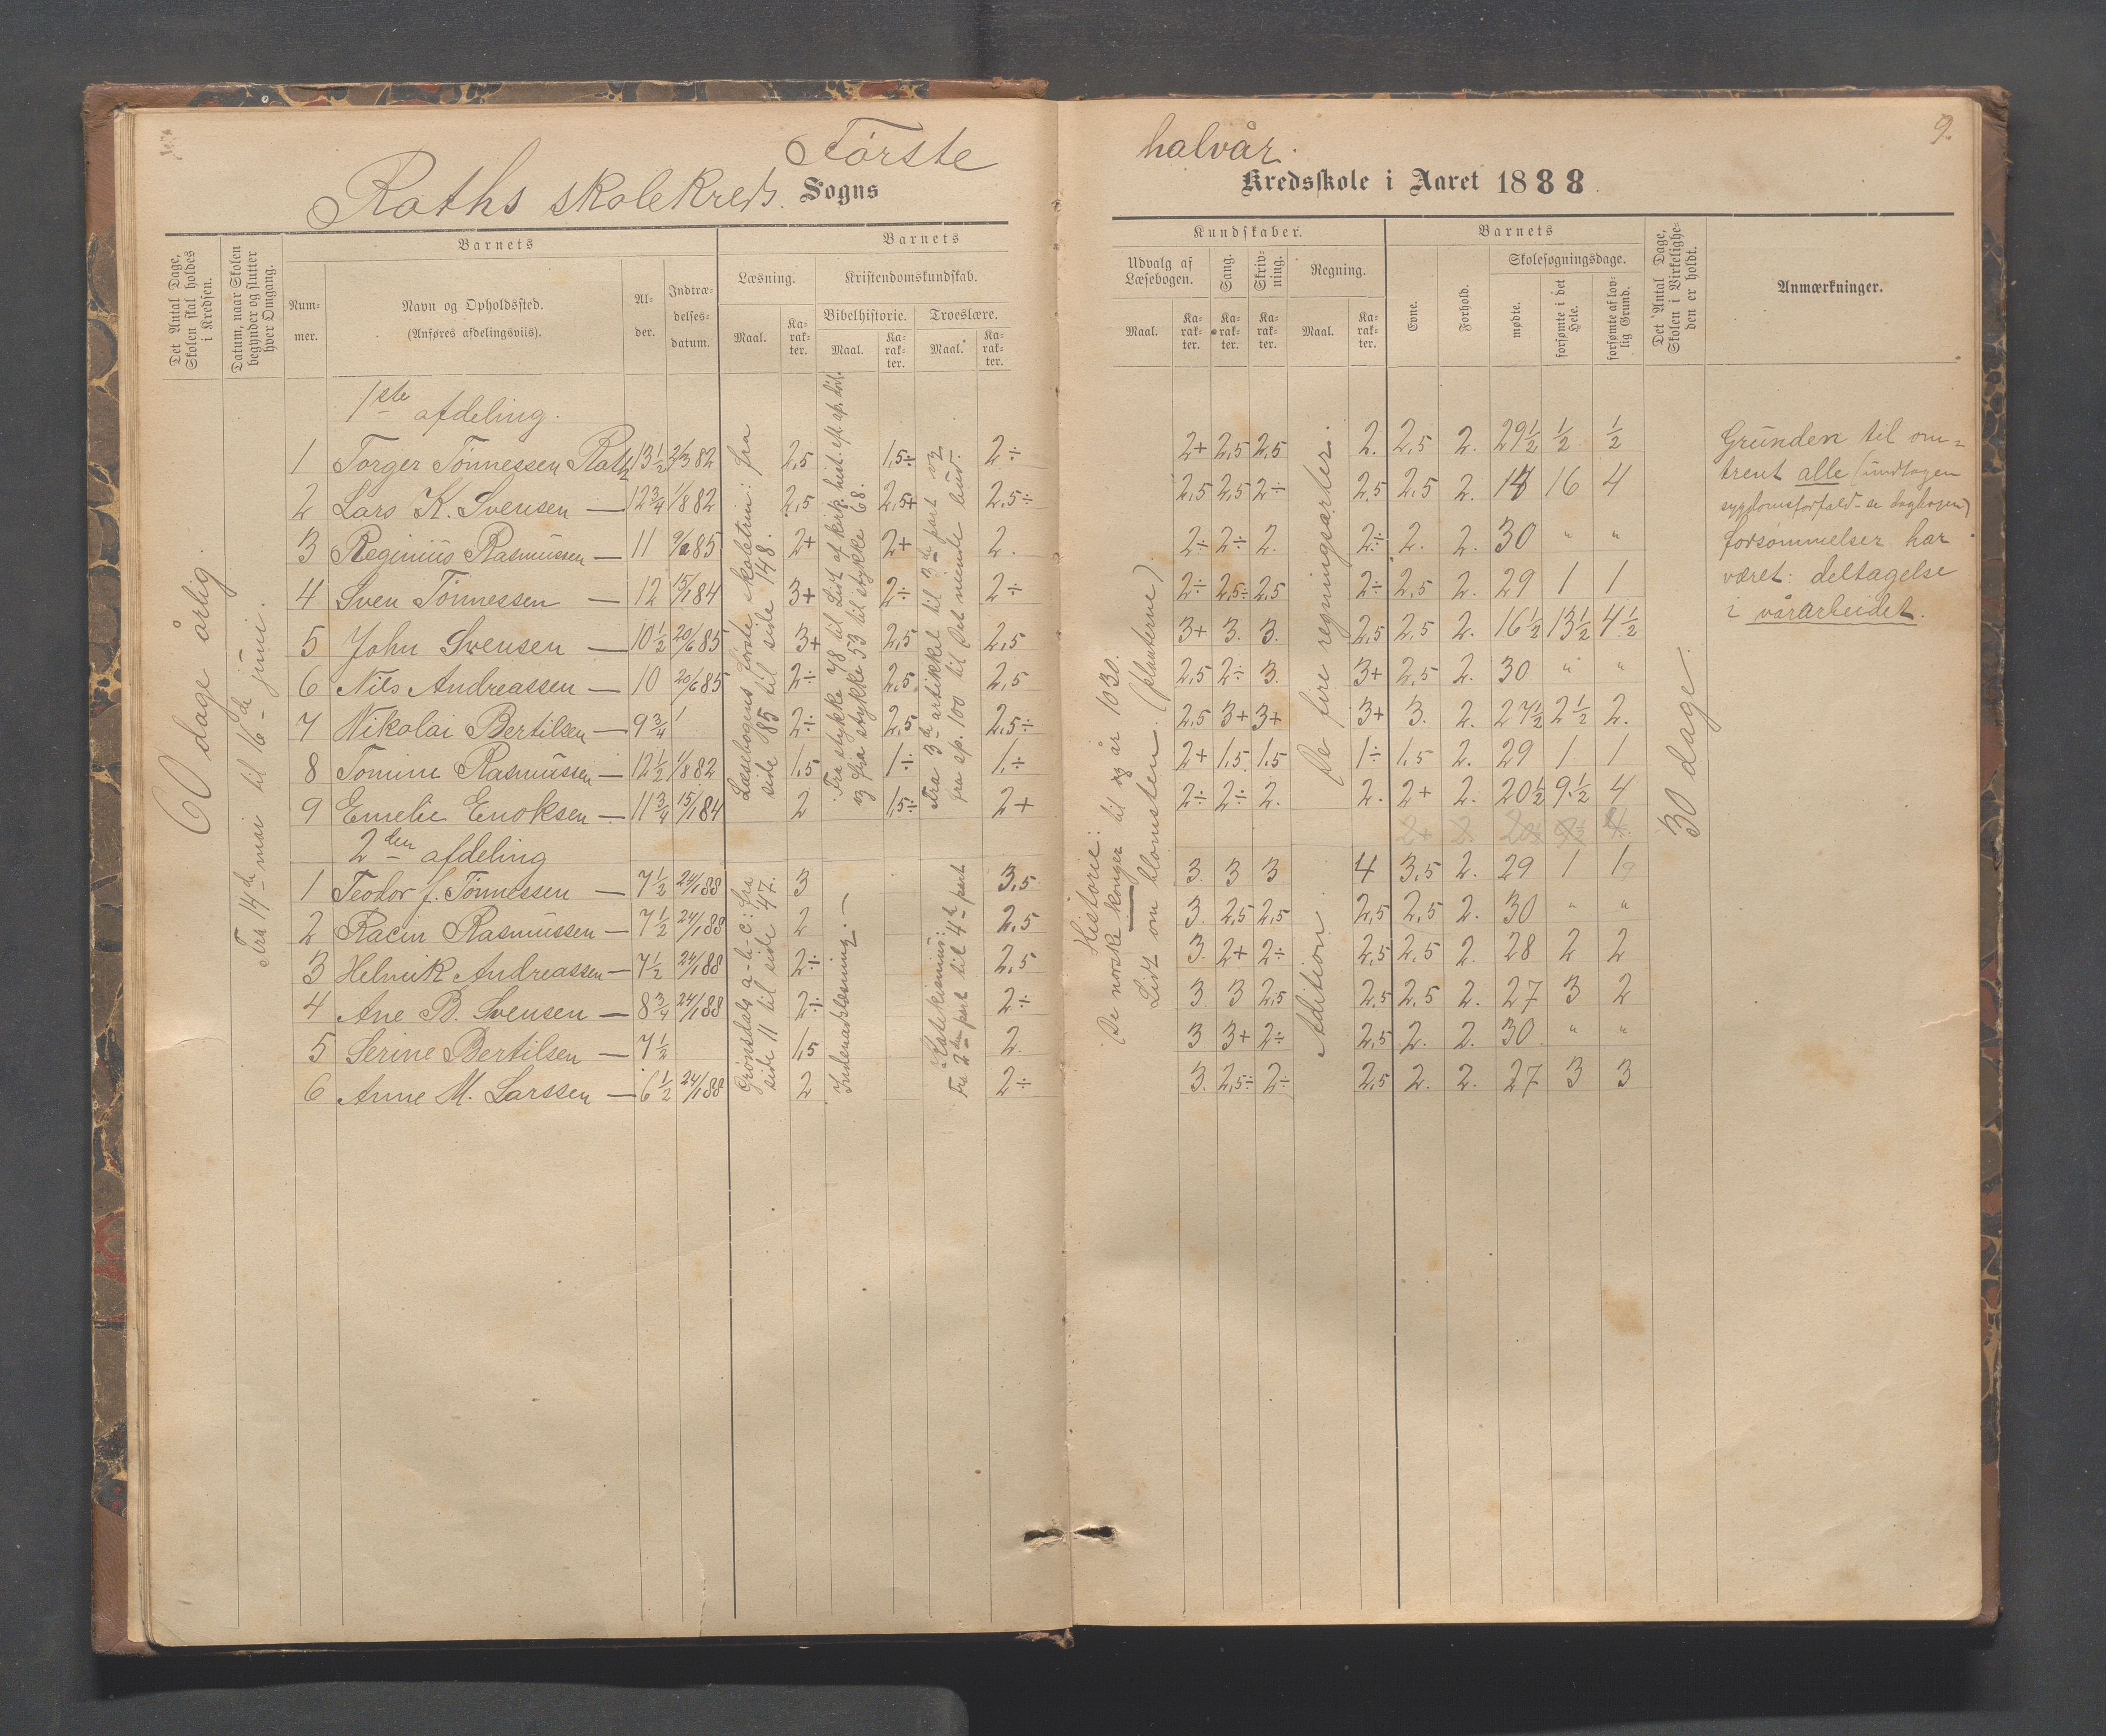 Første
Raths skolekreds. Sogns
Det Antal Dage, Skolen skal holdes i Kredsen.
Datum, naar Skolen begynder og slutter hver Omgang.
Barnets
Nummer.
Navn og Opholdssted.
(Anføres afdelingsviis).
Alder.
Indtrædelsesdatum.
Barnets
Læsning.
Kristendomskundskab.
Bibelhistorie.
Troeslære.
Maal.
Karakter.
Maal.
Karakter.
Maal.
Karakter.
60 dage årlig.
Fra 14de mai til 16de juni.
1ste afdeling.
1 Torger Tønnessen Rath 13 1/2 2/3 82 2,5 1,5÷ 2÷
2 Lars K. Svensen — 12 3/4 1/8 82 2,5 2,5+ 2,5÷
3 Reginius Rasmussen — 11 85 2+ 2+ 2.
4 Sven Tønnessen — 12 15/1 84 3+ 2÷ 2÷
5 John Svensen — 10 1/2 20/6 85 3+ 2,5 2,5
6 Nils Andreassen — 10 20/6 85 2÷ 2,5 2,5
7 Nikolai Bertilsen — 9 3/4 2÷ 2,5 2,5÷
8 Tomine Rasmussen — 12 1/2 1/8 82 1,5 1÷ 1,÷
9 Emelie Enoksen — 11 3/4 15/1 84 2 1,5÷ 2+
Læsebogens første skoletrin: fra
side 85 til side 148.
Fra stykke 78 til Lidt af kirk. hist. eft. ap. død.
og fra stykke 53 til stykke 68.
Fra 3de artikkel til 3de part og
fra sp. 100 til Det niende bud.
2den afdeling
1 Teodor f. Tønnessen — 7 1/2 24/1 88 3 3,5
2 Racin Rasmussen — 7 1/2 24/1 88 2 2,5
3 Helmik Andreassen — 7 1/2 24/1 88 2÷ 2,5
4 Ane B. Svensen — 8 3/4 24/1 88 2÷ 2÷
5 Serine Bertilsen — 7 1/2 1,5 2.
6 Anne M. Larssen — 6 1/2 24/1 88 2 2÷
Grønsdals a-b-c: fra
side 11 til side 47.
Indenadslæsning. —
Katekismus:
Fra 2den part til 4de part
halvår.
9.
Kredsskole i Aaret 1888.
Kundskaber.
Udvalg af Læsebogen.
Sang.
Skrivning.
Regning.
Maal.
Karakter.
Karakter.
Karakter.
Maal.
Karakter.
Barnets
Evne.
Forhold.
Skolesøgningsdage.
mødte.
forsømte i det Hele.
forsømte af lovlig Grund.
Det Antal Dage, Skolen i Virkeligheden er holdt.
Anmærkninger.
Historie:
De norske konger til og år 1030.
Lidt om blomsten. (planterne)
De fire regningsarter.
Adition.
2+ 2,5 2,5 2. 2,5 2. 29 1/2 1/2 1/2
2,5 2,5 2÷ 2,5 2,5 2. 14 16 4
2÷ 2÷ 2. 2÷ 2. 2. 30 " "
2÷ 2,5÷ 2,5 2÷ 2,5 2. 29 1 1
3+ 3. 3. 2,5 2,5 2. 16 1/2 13 1/2 4 1/2
2,5 2÷ 3. 3+ 2,5 2. 30 " "
2,5 3+ 3+ 3+ 3. 2. 27 1/2 2 1/2 2.
2+ 1,5 1,5 1÷ 1,5 2. 29 1 1
2÷ 2÷ 2. 2. 2+ 2. 20 1/2 9 1/2 4
3. 3 3 4 3,5 2. 29 1 1
3. 2,5 2,5 2,5 2,5 2. 30 " "
3. 2+ 2÷ 2,5 2,5 2. 28 2 2
3 3 2,5 2,5 2,5 2. 27 3 2
3 3+ 2÷ 2,5 2. 2. 30 " "
3. 2,5÷ 2÷ 2,5 2. 2. 27 3 3
30 dage.
Grunden til om=
trent alle (undtagen
sygdomsforfald - se dagbogen)
forsømmelser har
været: deltagelse
i vårarbeidet.